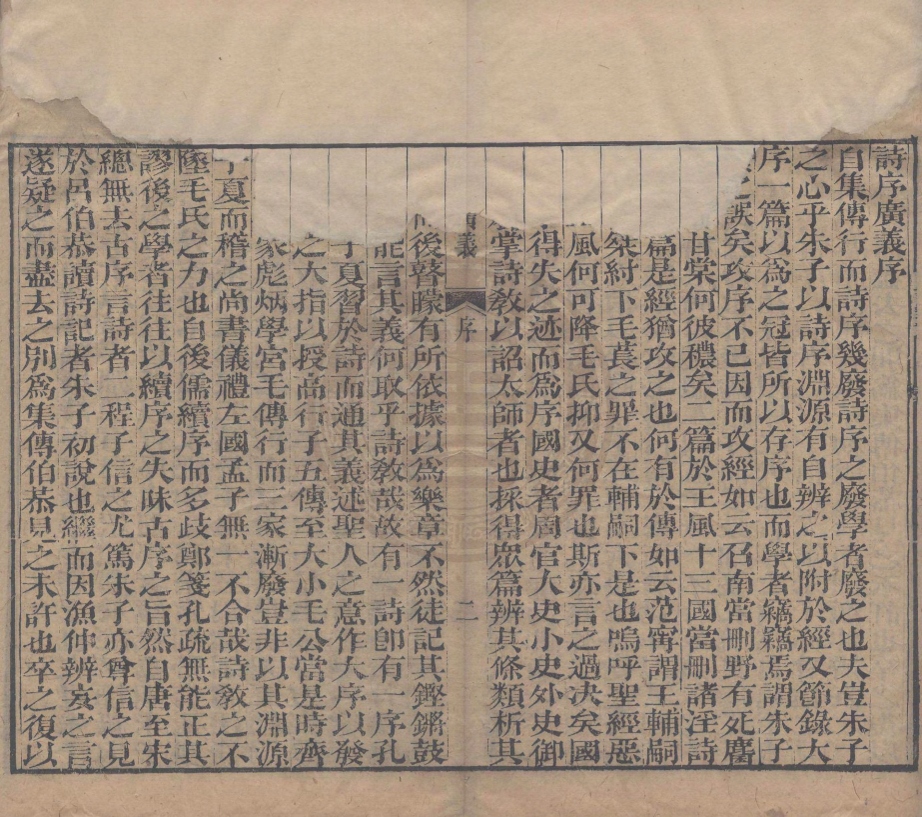 詩序廣義序
自集傳行而詩序幾廢詩序之廢學者廢之也夫豈朱子
之心乎朱子以詩序淵源有自辨之以附於經又節錄大
序一篇以為之冠皆所以存序也而學者竊竊焉謂朱子
之誤矣攻序不已因而攻經如云召南當刪野有死麕
甘棠何彼穠矣二篇於王風十三國當刪諸淫詩
篇是經猶攻之也何有於傳如云范甯謂王輔嗣
桀紂下毛萇之罪不在輔嗣下是也嗚呼聖經惡
風何可降毛氏抑又何罪也斯亦言之過決矣國
得失之迹而為序國史者周官大史小史外史御
掌詩敎以詔太師者也採得眾篇辨其條類析其
廣義
序
二
後瞽矇有所依據以為樂章不然徒記其鏗鏘鼓
能言其義何取乎詩敎哉故有一詩卽有一序孔
子夏習於詩而通其義述聖人之意作大序以發
之大指以授高行子五傳至大小毛公當是時齊
家彪炳學宮毛傳行而三家漸廢豈非以其淵源
子夏而稽之尚書儀禮左國孟子無一不合哉詩敎之不
墜毛氏之力也自後儒續序而多歧鄭箋孔疏無能正其
謬後之學者往往以續序之失昧古序之旨然自唐至宋
總無去古序言詩者二程子信之尤篤朱子亦尊信之見
於呂伯恭讀詩記者朱子初說也繼而因漁仲辨妄之言
遂疑之而盡去之別為集傳伯恭見之未許也卒之復以